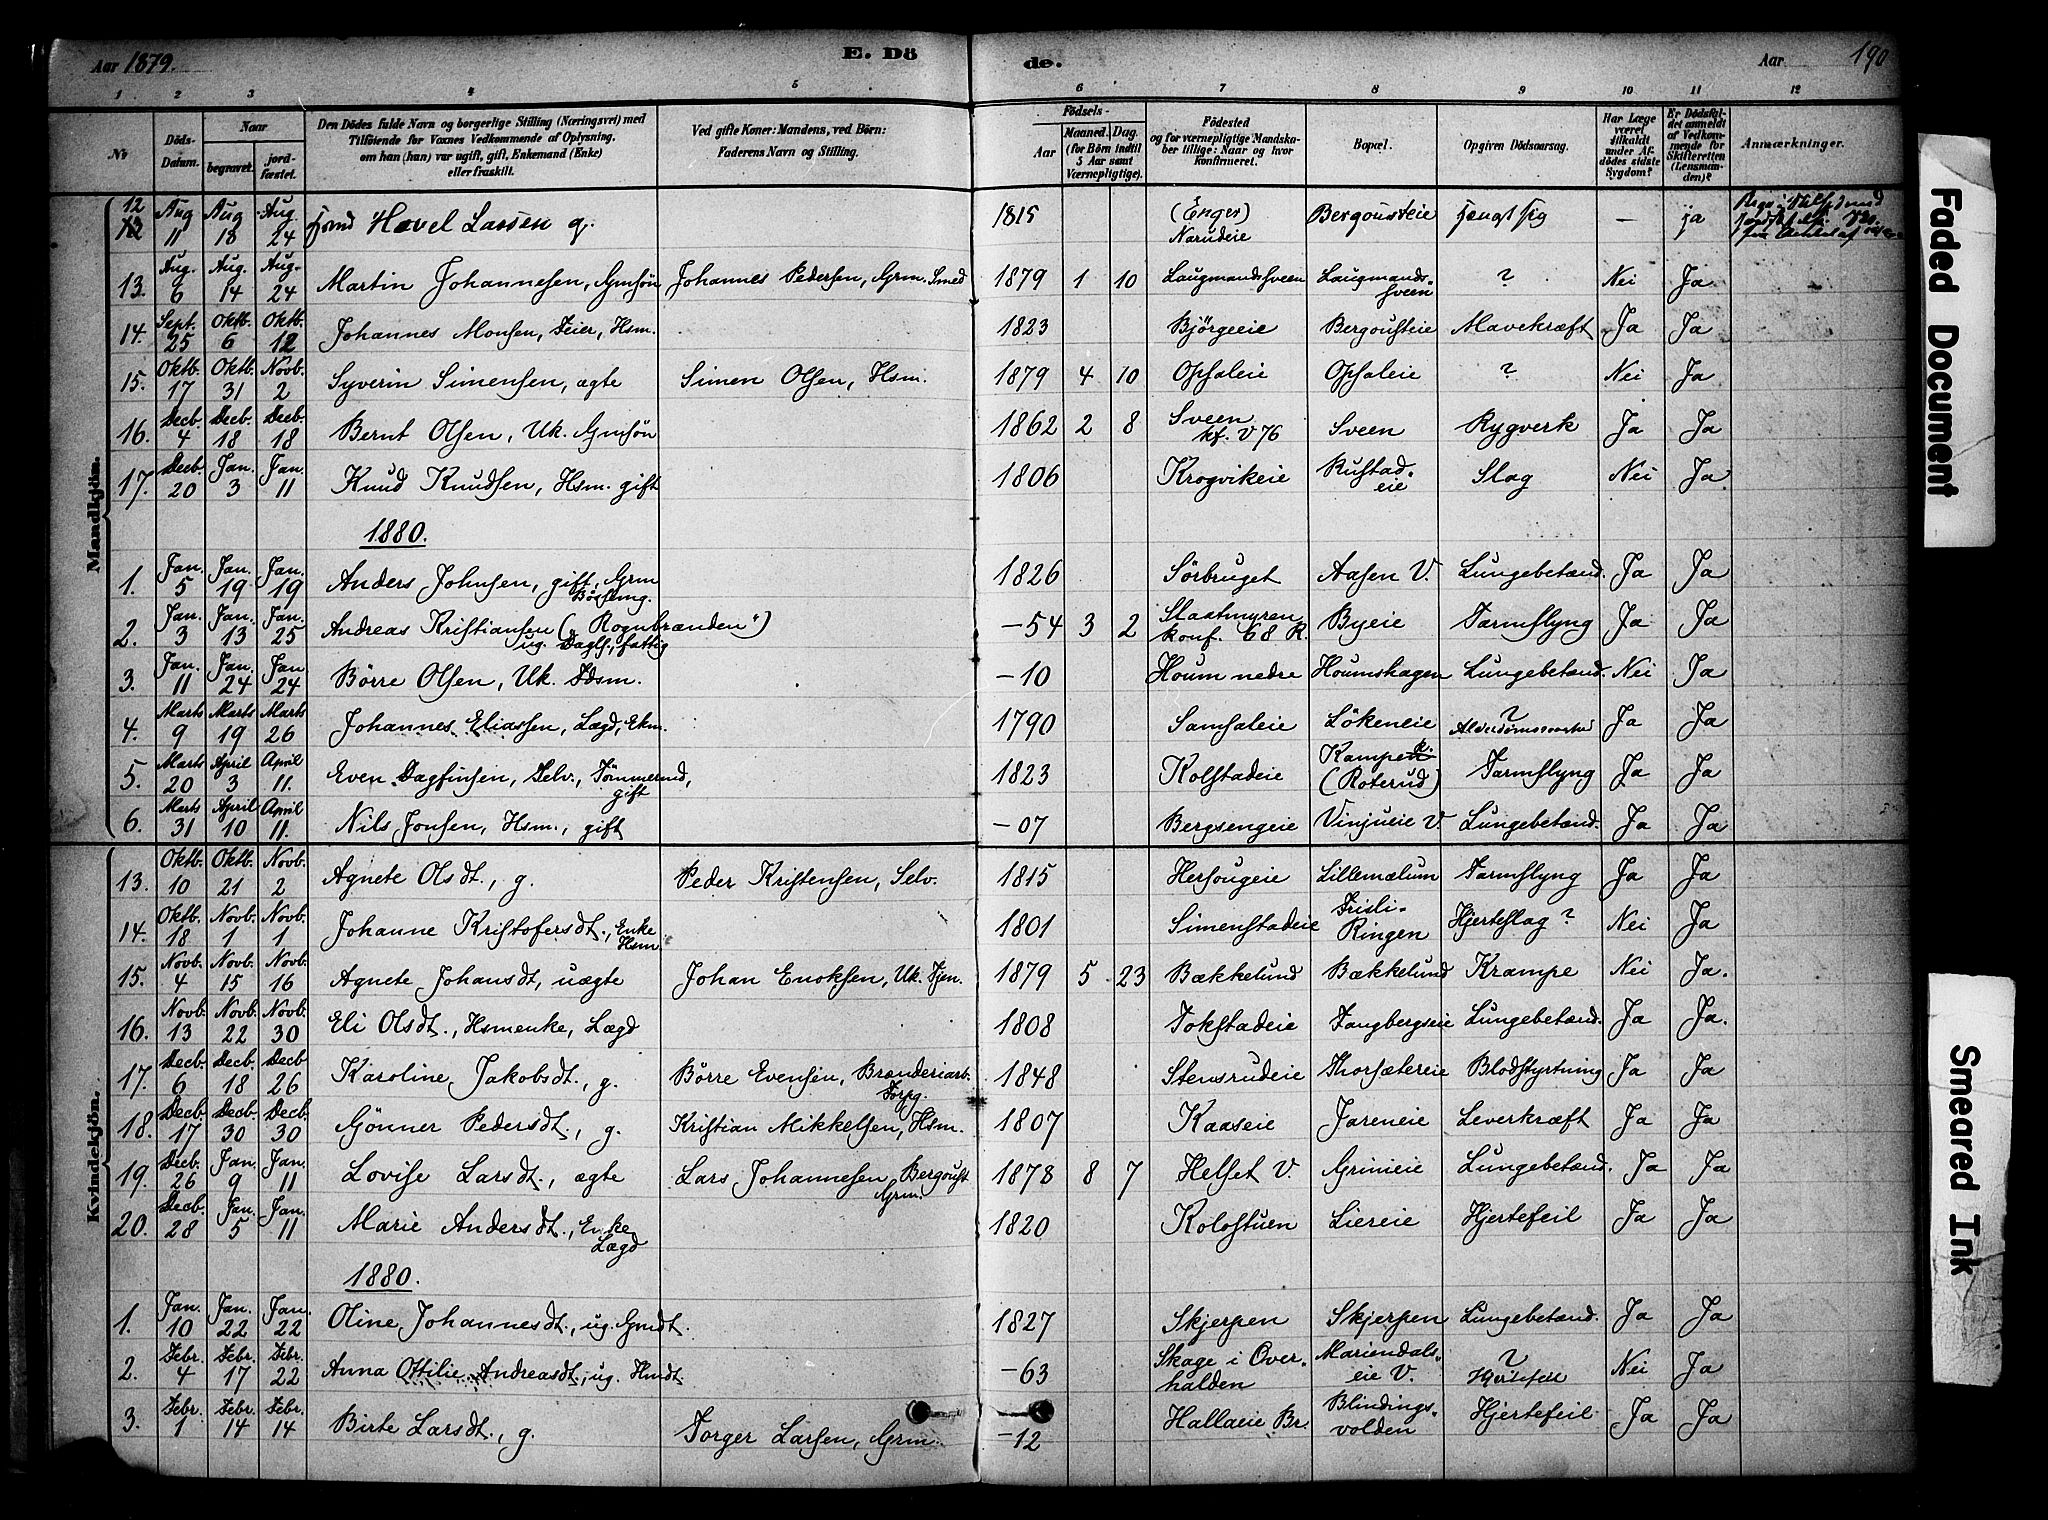 Aar 1879.
E. Dö
de.
Aar
190
1 2 3 4 5 6 7 8 9 10 11 12
No
Döds-Datum.
Naar
begravet.
jord-fæstet.
Den Dödes fulde Navn og borgerlige Stilling (Næringsvei) med
Tilföiende for Voxnes Vedkommende af Oplysning.
om han (hun) var ugift, gift, Enkemand (Enke)
eller fraskilt.
Ved gifte Koner: Mandens, ved Börn:
Faderens Navn og Stilling.
Födsels-
Aar
Maaned. Dag.
(for Börn indtil
5 Aar samt
Værnepligtige).
Födested
og for værnepligtige Mandska-
ber tillige: Naar og hvor
Konfirmeret.
Bopæl.
Opgiven Dödsaarsag.
Har Læge
været
tilkaldt
under Af-
dödes sidste
Sygdom?
Er Dödsfal-
det anmeldt
af Vedkom-
mende for
Skifteretten
(Lensman-
den)?
Anmærkninger.
Mandkjön.
12 Aug 11 Aug 18 Aug. 24 Hovel Larsen g. 1815 (Enger) Narudeie Bergousteie — ja
13. Aug. 6 Aug. 14 Aug. 24 Martin Johannesen, Grmsön Johannes Pedersen, Grm. Smed 1879 1 10 Laugmandssveen Laugmands-sveen ? Nei Ja
14. Sept. 25 Oktb. 6 Oktb. 12 Johannes Monsen, Feier, Hsm. 1823 Bjørgeeie Bergousteie Mavekræft Ja Ja
15. Oktb. 17 Oktb. 31 Novb. 2 Syverin Simensen, ægte Simen Olsen, Hsm. 1879 4 10 Opsaleie Opsaleie ? Nei Ja
16. Decb. 4 Decb. 18 Decb. 18 Bernt Olsen, Uk. Grmsön 1862 2 8 Sveen kf. V 76 Sveen Rygverk Ja Ja
17. Decb. 20 Jan. 3 Jan. 11 Knud Knudsen, Hsm. gift 1806 Krogvikeie Rustad-eie Slag Nei Ja
1880.
1. Jan. 5 Jan. 19 Jan. 19 Anders Johnsen, gift, Grm 1826 Sörbruget Aasen V. Lungebetænd. Ja Ja
2. Jan. 3 Jan. 13 Jan. 25 Andreas Kristiansen („Rognbrænden") ug. Dagl., fattig -54 3 2 Slaatmyren konf. 68 R. Byeie Tarmslyng Ja Ja
3. Jan. 11 Jan. 24 Jan. 24 Börre Olsen, Uk. Hsm. -10 Houm nedre Houmshagen Lungebetænd. Nei Ja
4. Marts 9 Marts 19 Marts 26 Johannes Eliassen, Lægd, Ekm. 1790 Samsaleie Lökeneie ? Ja Ja
5. Marts 20 April 3 April 11. Even Dagfinsen, Selv., Tömmermd, gift 1823 Kolstadeie Kampen (Roterud) Tarmslyng Ja Ja
6. Marts 31 April 10 April 11 Nils Jonsen, Hsm., gift -07 Bergsengeie Vinjueie V. Lungebetænd. Ja Ja
Kvindekjön.
13. Oktb. 10 Oktb. 21 Novb. 2 Agnete Olsdt., g. Peder Kristensen, Selv. 1815 Hersougeie Lillemælum Tarmslyng Ja Ja
14. Oktb. 18 Novb. 1 Novb. 1 Johanne Kristofersdt., Enke Hsm. 1801 Simenstadeie Frisli-Ringen Hjerteslag ? Nei Ja
15. Novb. 4 Novb. 15 Novb. 16 Agnete Johansdt, uægte Johan Enoksen, Uk. Hsm. 1879 5 23 Bækkelund Bækkelund Krampe Nei Ja.
16. Novb. 13 Novb. 22 Novb. 30 Eli Olsdt., Hsmenke, Lægd 1808 Tokstadeie Fangbergseie Lungebetænd. Ja Ja.
17. Decb. 6 Decb. 18 Decb. 26 Karoline Jakobsdt., g. Börre Evensen, Brænderiarb. Torpg. 1848 Stensrudeie Thorsætereie Blodstyrtning Ja Ja
18. Decb. 17 Decb. 30 Decb. 30 Gönner Pedersdt., g. Kristian Mikkelsen, Hsm. 1807 Kaaseie Jareneie Leverkræft Ja Ja
19. Decb. 26 Jan. 9 Jan. 11 Lovise Larsdt., ægte Lars Johannesen, Bergoust Grm. 1878 8 7 Helset V. Grimeie Lungebetænd. Ja Ja
20. Decb. 28 Jan. 5 Jan. 11 Marie Andersdt., Enke Lægd 1820 Kolostuen Liereie Hjertefeil Ja Ja
1880.
1. Jan. 10 Jan. 22 Jan. 22 Oline Johannesdt., ug. Grmdt. 1827 Skjerpen Skjerpen Lungebetænd. Ja Ja
2. Febr. 4 Febr. 17 Febr. 22 Anna Ottilie Andreasdt., ug. Hmdt. -63 Skage i Over-halden Mariendals-eie V. ? Nei Ja
3. Febr. 1 Febr. 14 Febr. 14 Birte Larsdt., g. Torger Larsen, Grm. -12 Hallaeie Br. Blindings-volden Hjertefeil Ja Ja
Faded Document
Smeared Ink